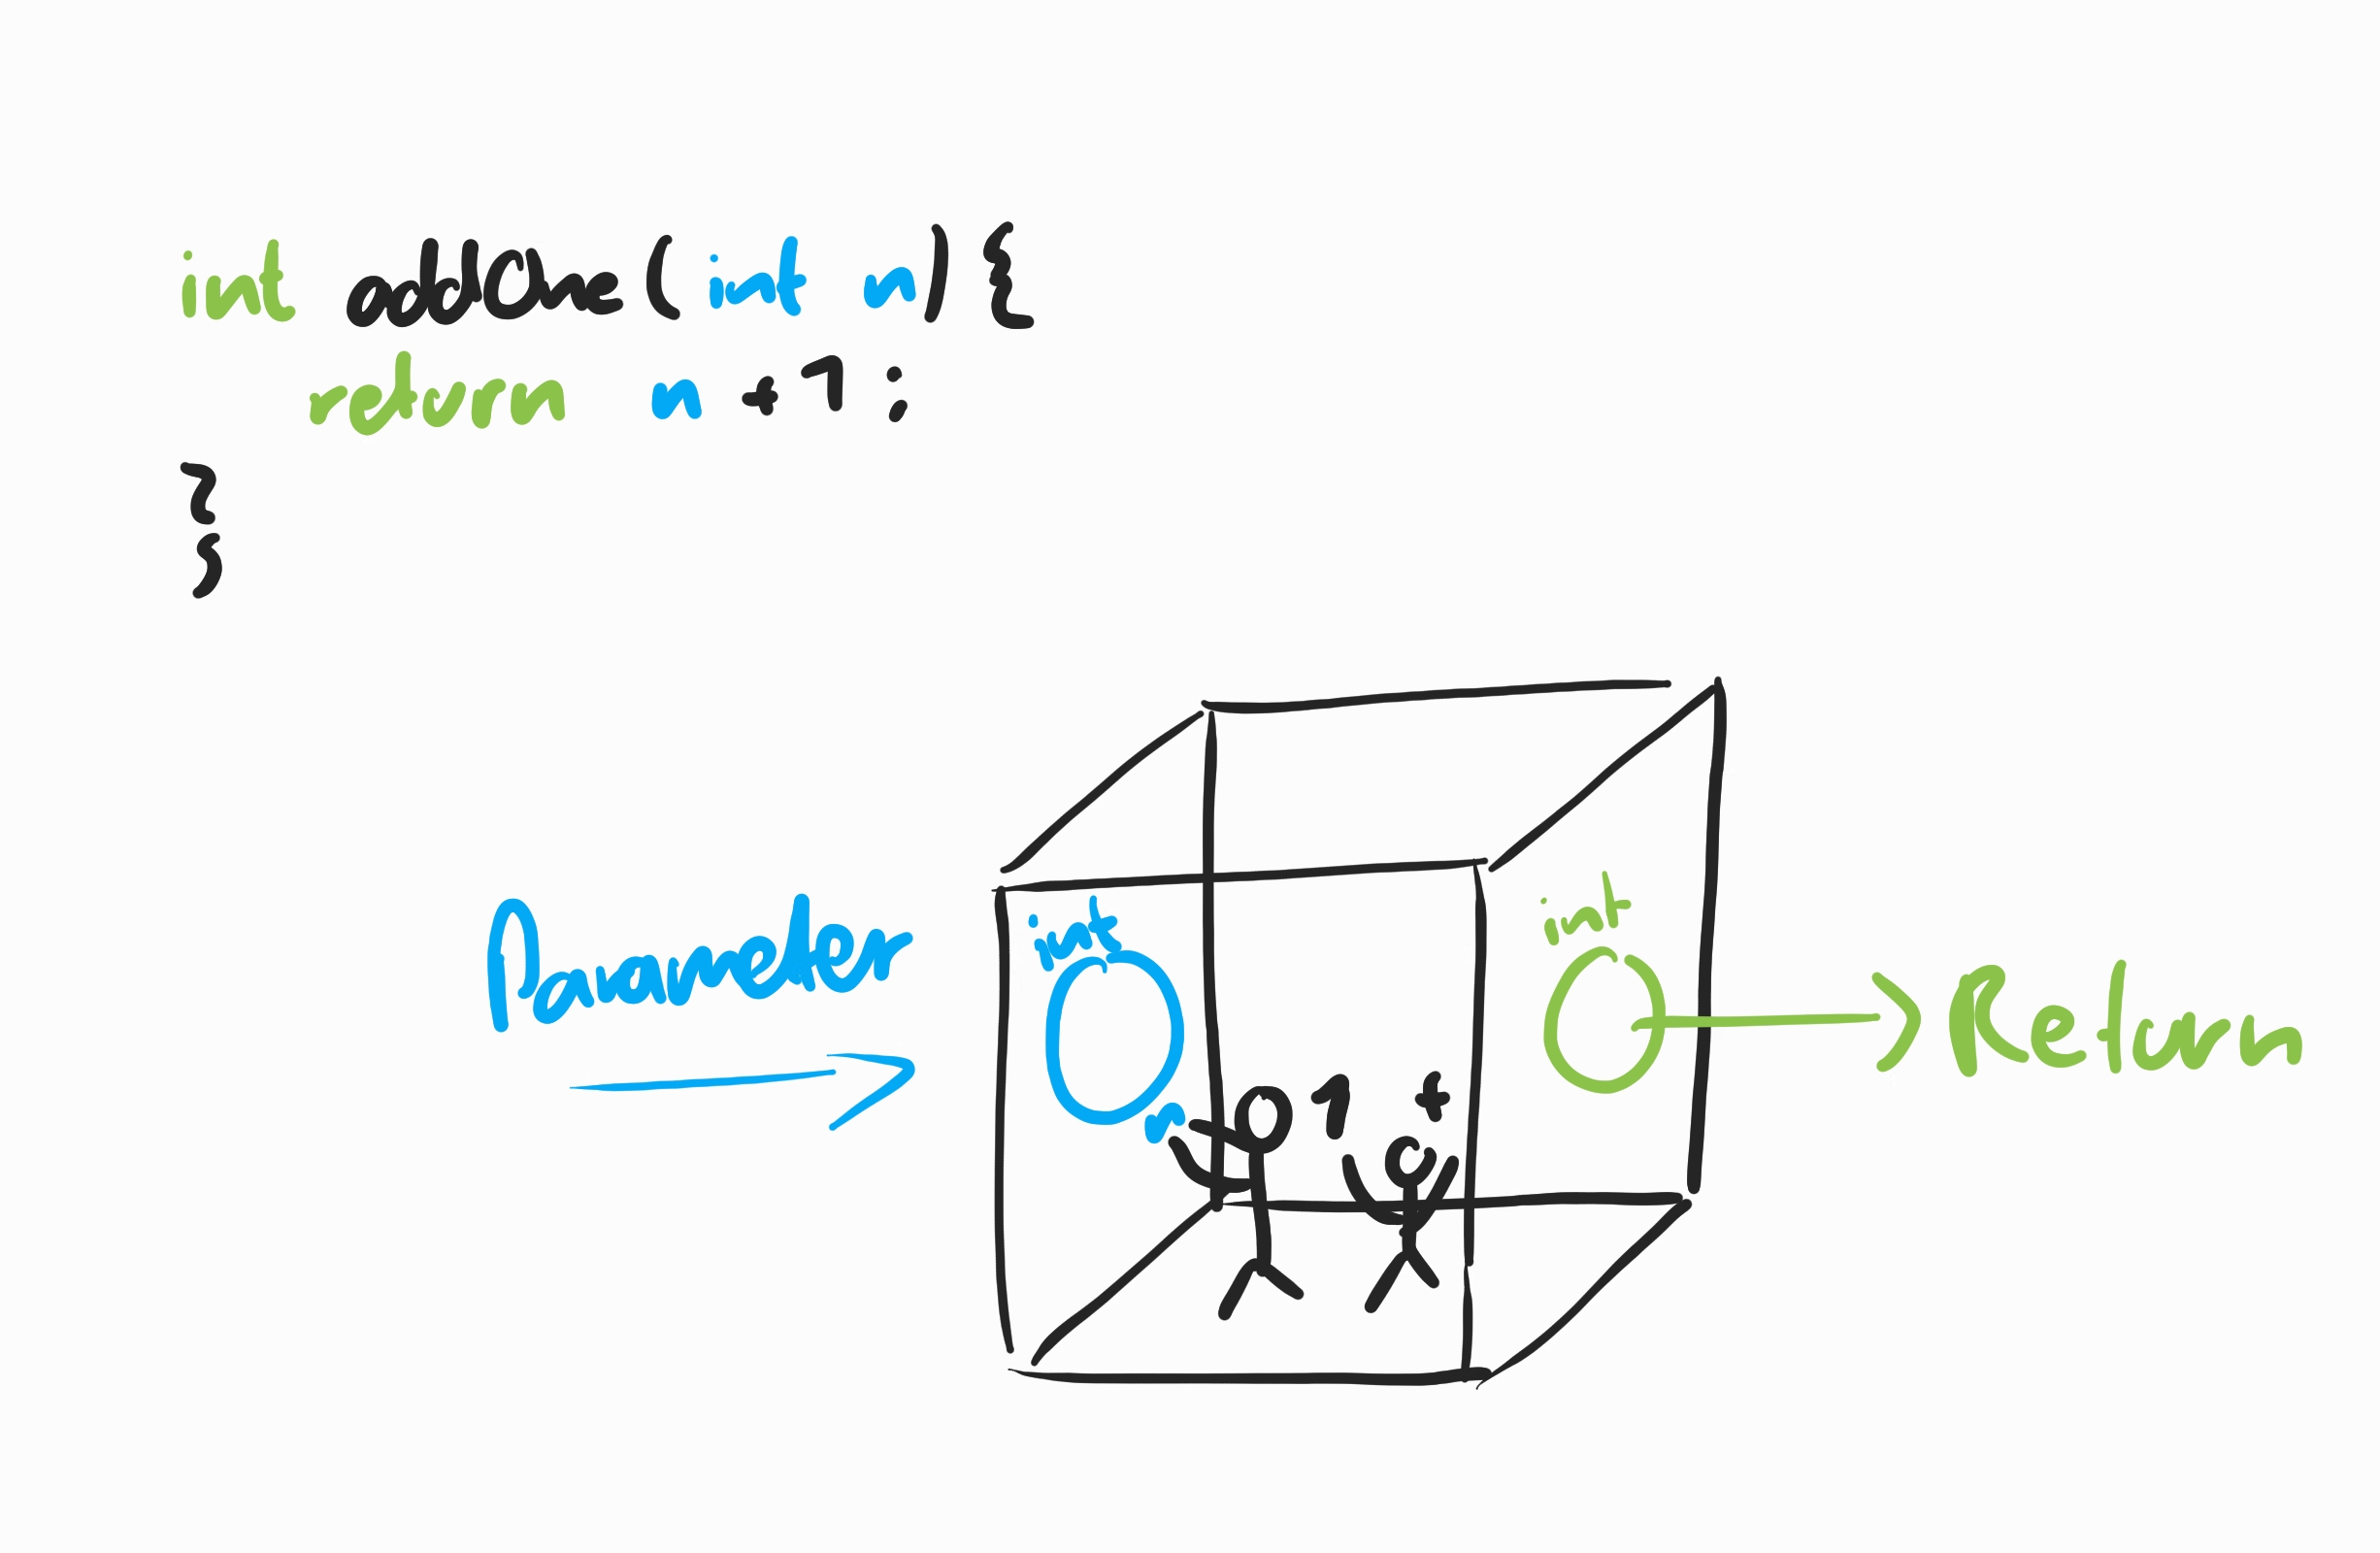 int addOne (int n) {
return n + 1 ;
}
Parameter
int
n
1 +
int
Return